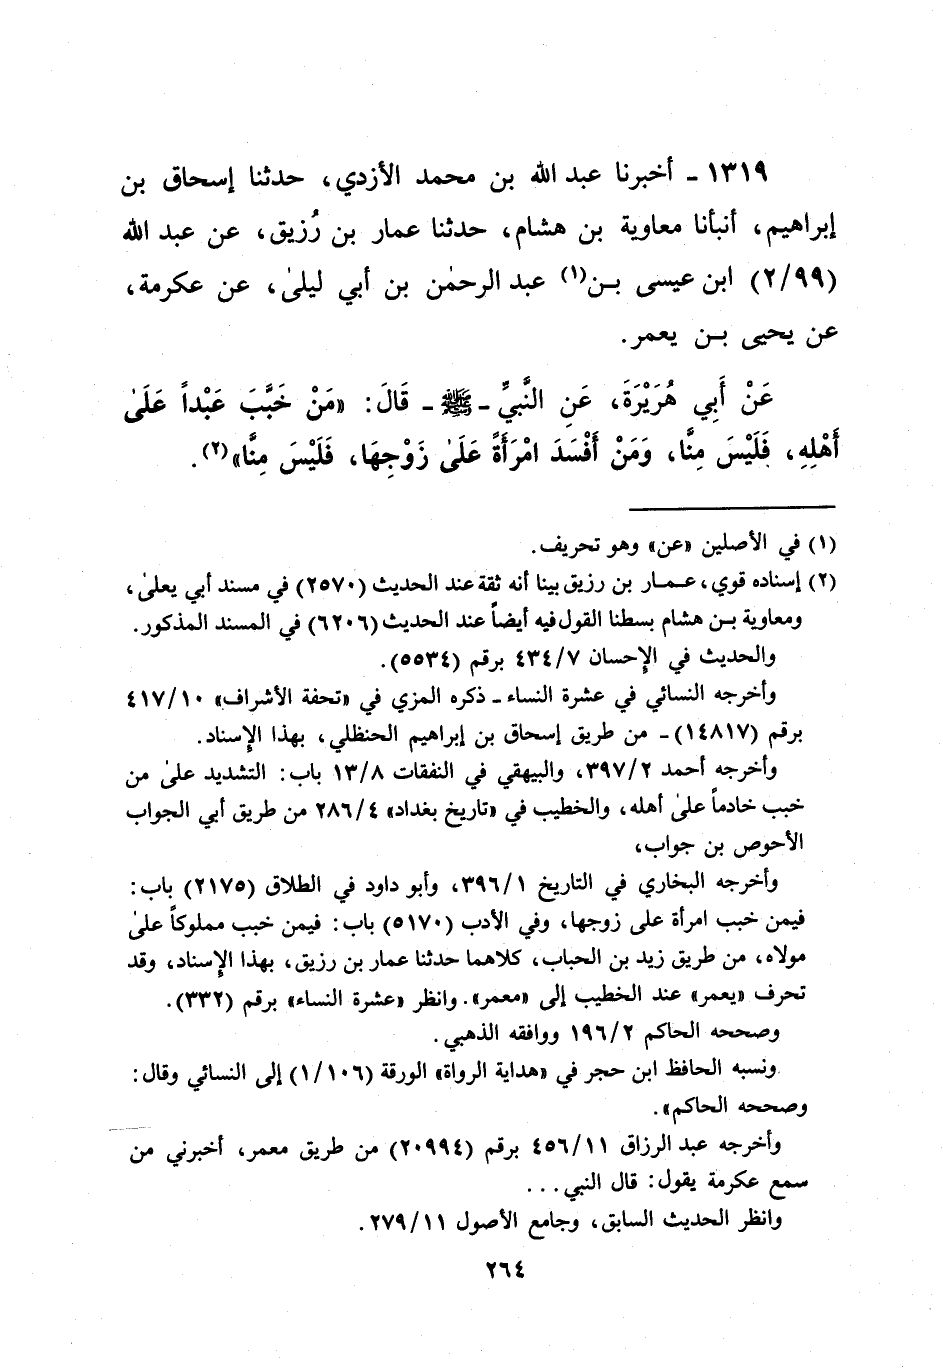 ١٣١٩ - أخبرنا عبد الله بن محمد الأزدي، حدثنا إسحاق بن
إبراهيم، أنبأنا معاوية بن هشام، حدثنا عمار بن رُزيق، عن عبد الله
(٢/٩٩) ابن عيسى بن(١) عبد الرحمٰن بن أبي ليلىٰ، عن عكرمة،
عن يحيى بن يعمر.
عَنْ أَبِي هُرَيْرَةَ، عَنِ النَّبِيِّ - ﷺ - قَالَ: «مَنْ خَبَّبَ عَبْداً عَلَىٰ
أَهْلِهِ، فَلَيْسَ مِنَّا، وَمَنْ أَفْسَدَ امْرَأَةً عَلَىٰ زَوْجِهَا، فَلَيْسَ مِنَّا»(٢).
(١) في الأصلين «عن» وهو تحريف.
(٢) إسناده قوي، عمار بن رزيق بينا أنه ثقة عند الحديث (٢٥٧٠) في مسند أبي يعلىٰ،
ومعاوية بن هشام بسطنا القول فيه أيضاً عند الحديث (٦٢٠٦) في المسند المذكور.
والحديث في الإحسان ٤٣٤/٧ برقم (٥٥٣٤).
وأخرجه النسائي في عشرة النساء - ذكره المزي في «تحفة الأشراف» ٤١٧/١٠
برقم (١٤٨١٧) - من طريق إسحاق بن إبراهيم الحنظلي، بهذا الإسناد.
وأخرجه أحمد ٣٩٧/٢، والبيهقي في النفقات ١٣/٨ باب: التشديد علىٰ من
خبب خادماً علىٰ أهله، والخطيب في «تاريخ بغداد» ٢٨٦/٤ من طريق أبي الجواب
الأحوص بن جواب،
وأخرجه البخاري في التاريخ ٣٩٦/١، وأبو داود في الطلاق (٢١٧٥) باب:
فيمن خبب امرأة على زوجها، وفي الأدب (٥١٧٠) باب: فيمن خبب مملوكاً علىٰ
مولاه، من طريق زيد بن الحباب، كلاهما حدثنا عمار بن رزيق، بهذا الإسناد، وقد
تحرف «يعمر» عند الخطيب إلى «معمر». وانظر «عشرة النساء» برقم (٣٣٢).
وصححه الحاكم ١٩٦/٢ ووافقه الذهبي.
ونسبه الحافظ ابن حجر في «هداية الرواة» الورقة (١/١٠٦) إلى النسائي وقال:
وصححه الحاكم».
وأخرجه عبد الرزاق ٤٥٦/١١ برقم (٢٠٩٩٤) من طريق معمر، أخبرني من
سمع عكرمة يقول: قال النبي...
وانظر الحديث السابق، وجامع الأصول ٢٧٩/١١.
٢٦٤